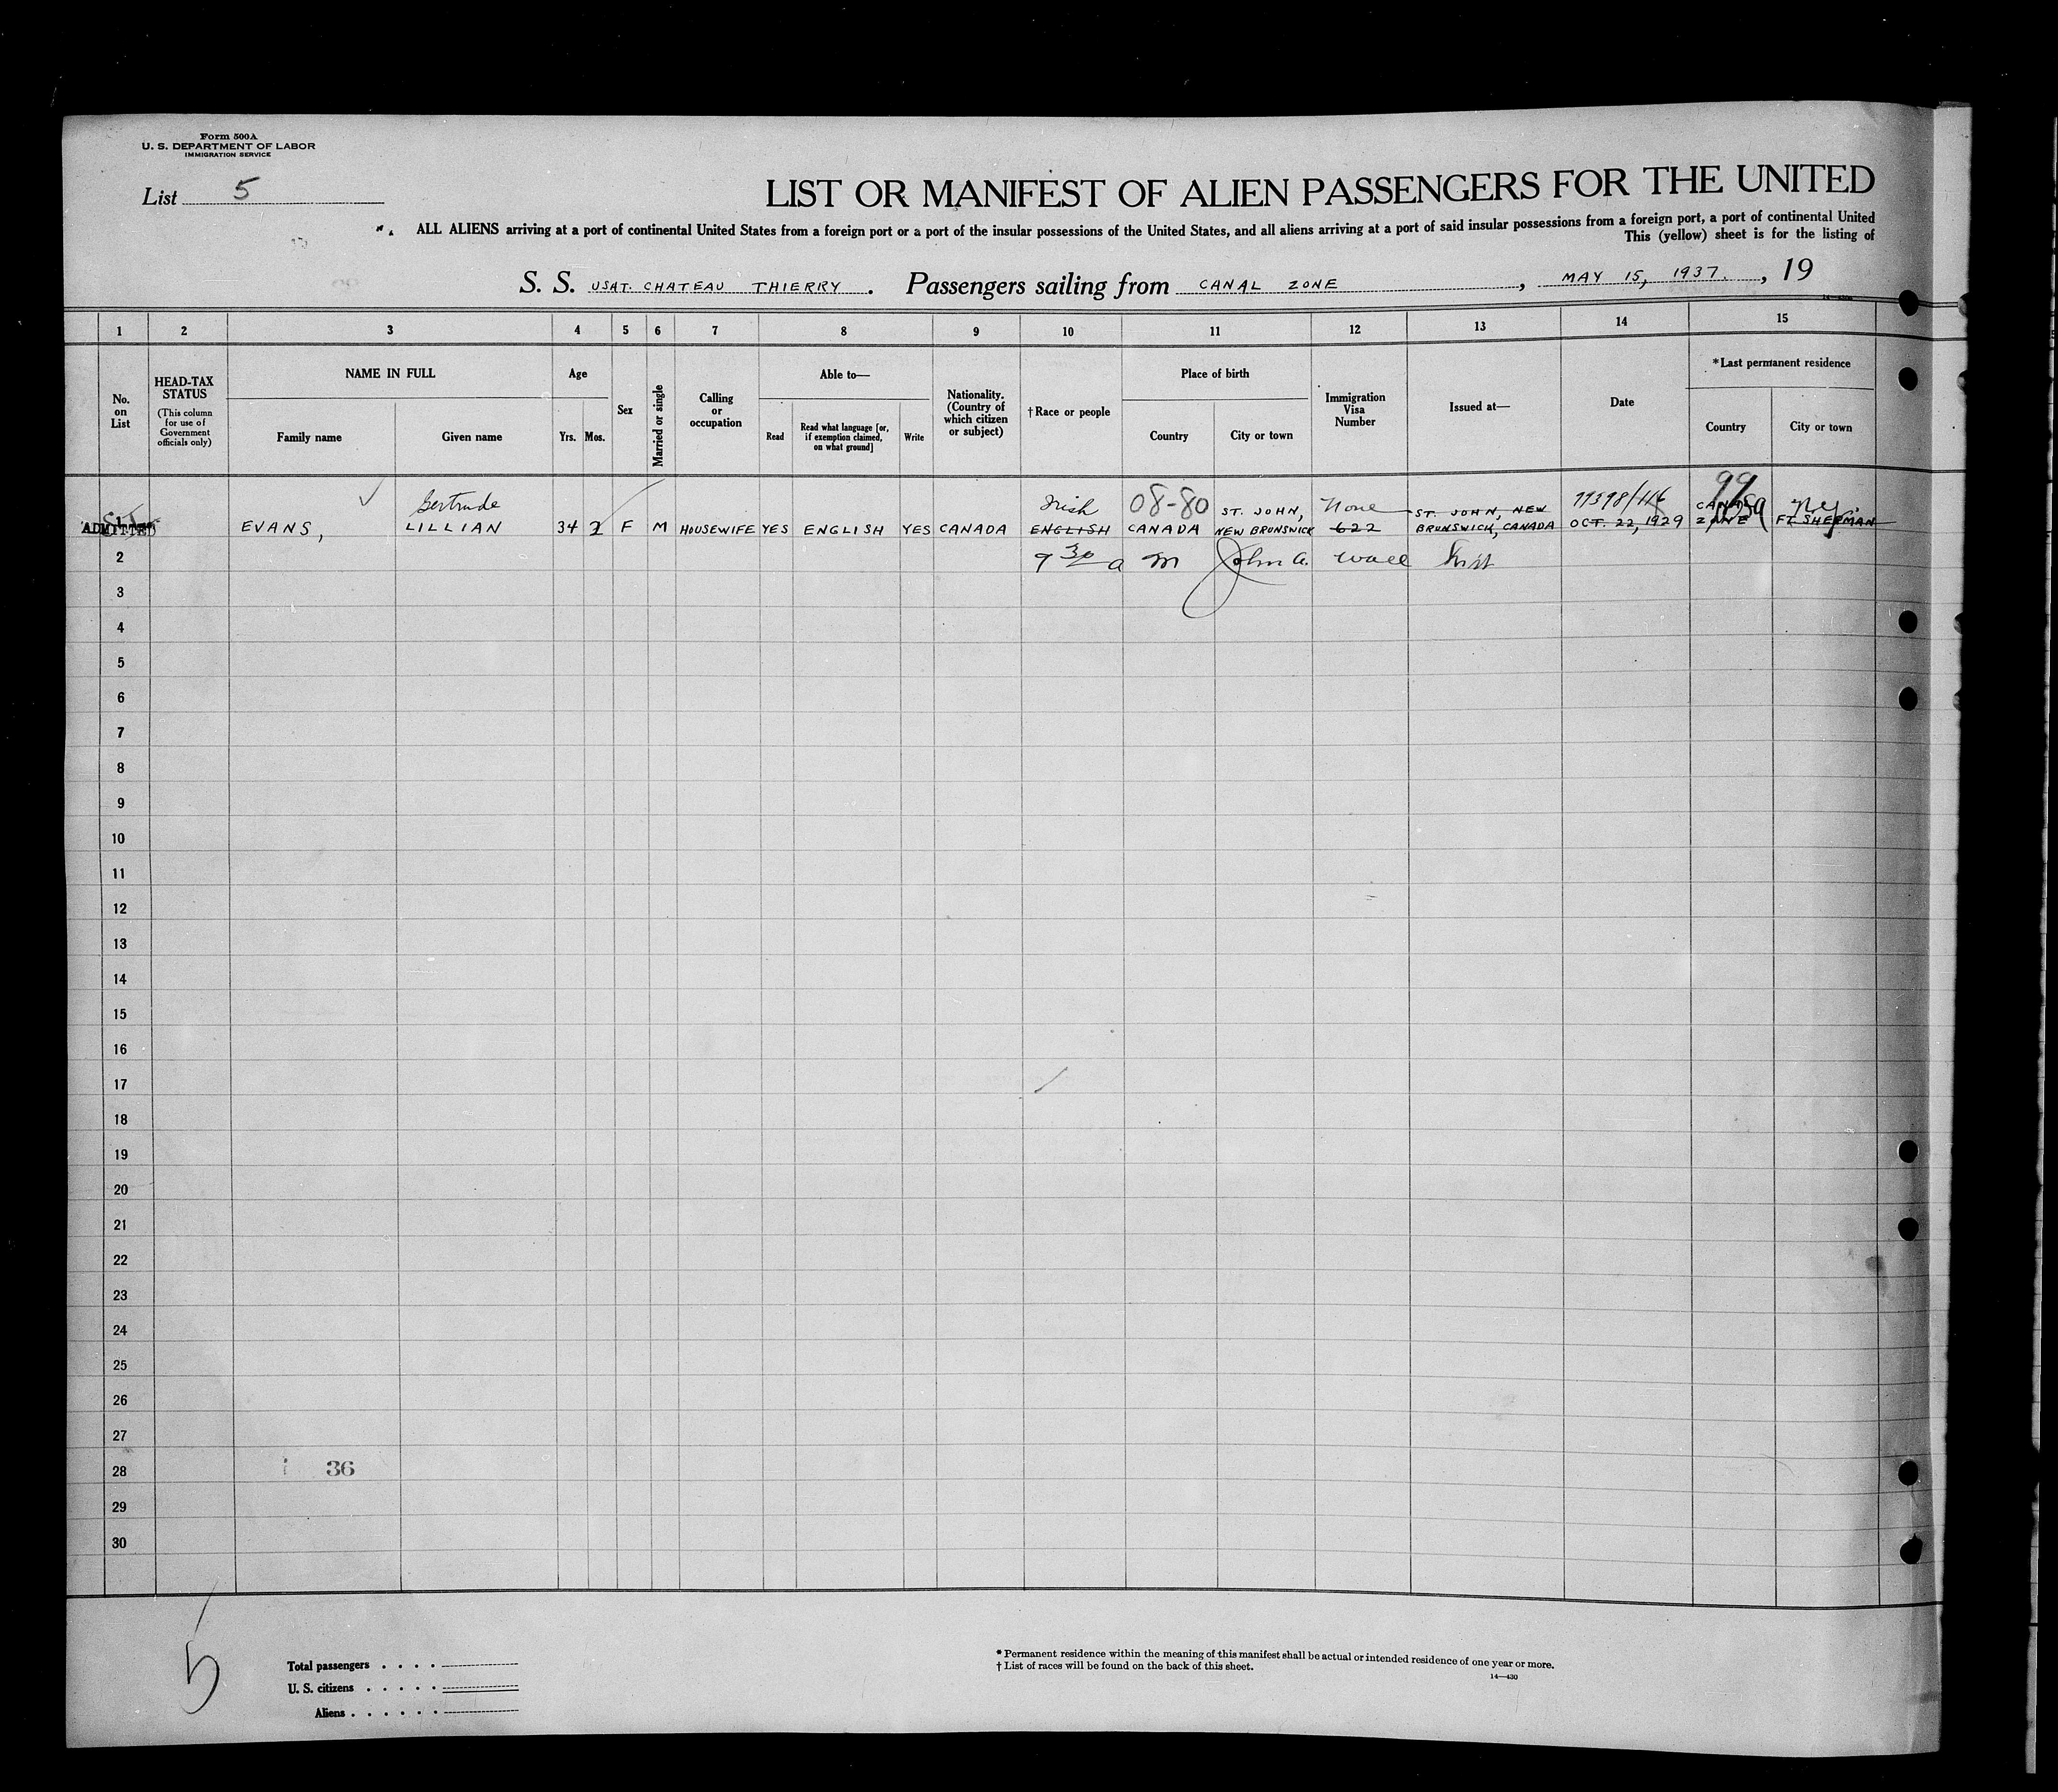 Form 500A
U. S. DEPARTMENT OF LABOR
IMMIGRATION SERVICE
List 5
LIST OR MANIFEST OF ALIEN PASSENGERS FOR THE UNITED
ALL ALIENS arriving at a port of continental United States from a foreign port or a port of the insular possessions of the United States, and all aliens arriving at a port of said insular possessions from a foreign port, a port of continental United
This (yellow) sheet is for the listing of
S. S. USAT. CHATEAU THIERRY. Passengers sailing from CANAL ZONE, MAY 15, 1937., 19
1 2 3 4 5 6 7 8 9 10 11 12 13 14 15
No. on List
HEAD-TAX STATUS
(This column for use of Government officials only)
NAME IN FULL
Family name
Given name
Age
Yrs. Mos.
Sex
Married or single
Calling or occupation
Able to—
Read
Read what language [or, if exemption claimed, on what ground]
Write
Nationality. (Country of which citizen or subject)
†Race or people
Place of birth
Country
City or town
Immigration Visa Number
Issued at—
Date
*Last permanent residence
Country
City or town
Gertrude Irish 08-80 ST. JOHN, None ST. JOHN, NEW 99
ADMITTED EVANS, LILLIAN 34 2 F M HOUSEWIFE YES ENGLISH YES CANADA ENGLISH CANADA NEW BRUNSWICK 622 BRUNSWICK, CANADA OCT. 22, 1929 ZONE FT. SHERMAN
2 9 30 a m John A. Wall
3
4
5
6
7
8
9
10
11
12
13
14
15
16
17
18
19
20
21
22
23
24
25
26
27
28 36
29
30
5
Total passengers
U. S. citizens
Aliens
* Permanent residence within the meaning of this manifest shall be actual or intended residence of one year or more.
† List of races will be found on the back of this sheet.
14—430